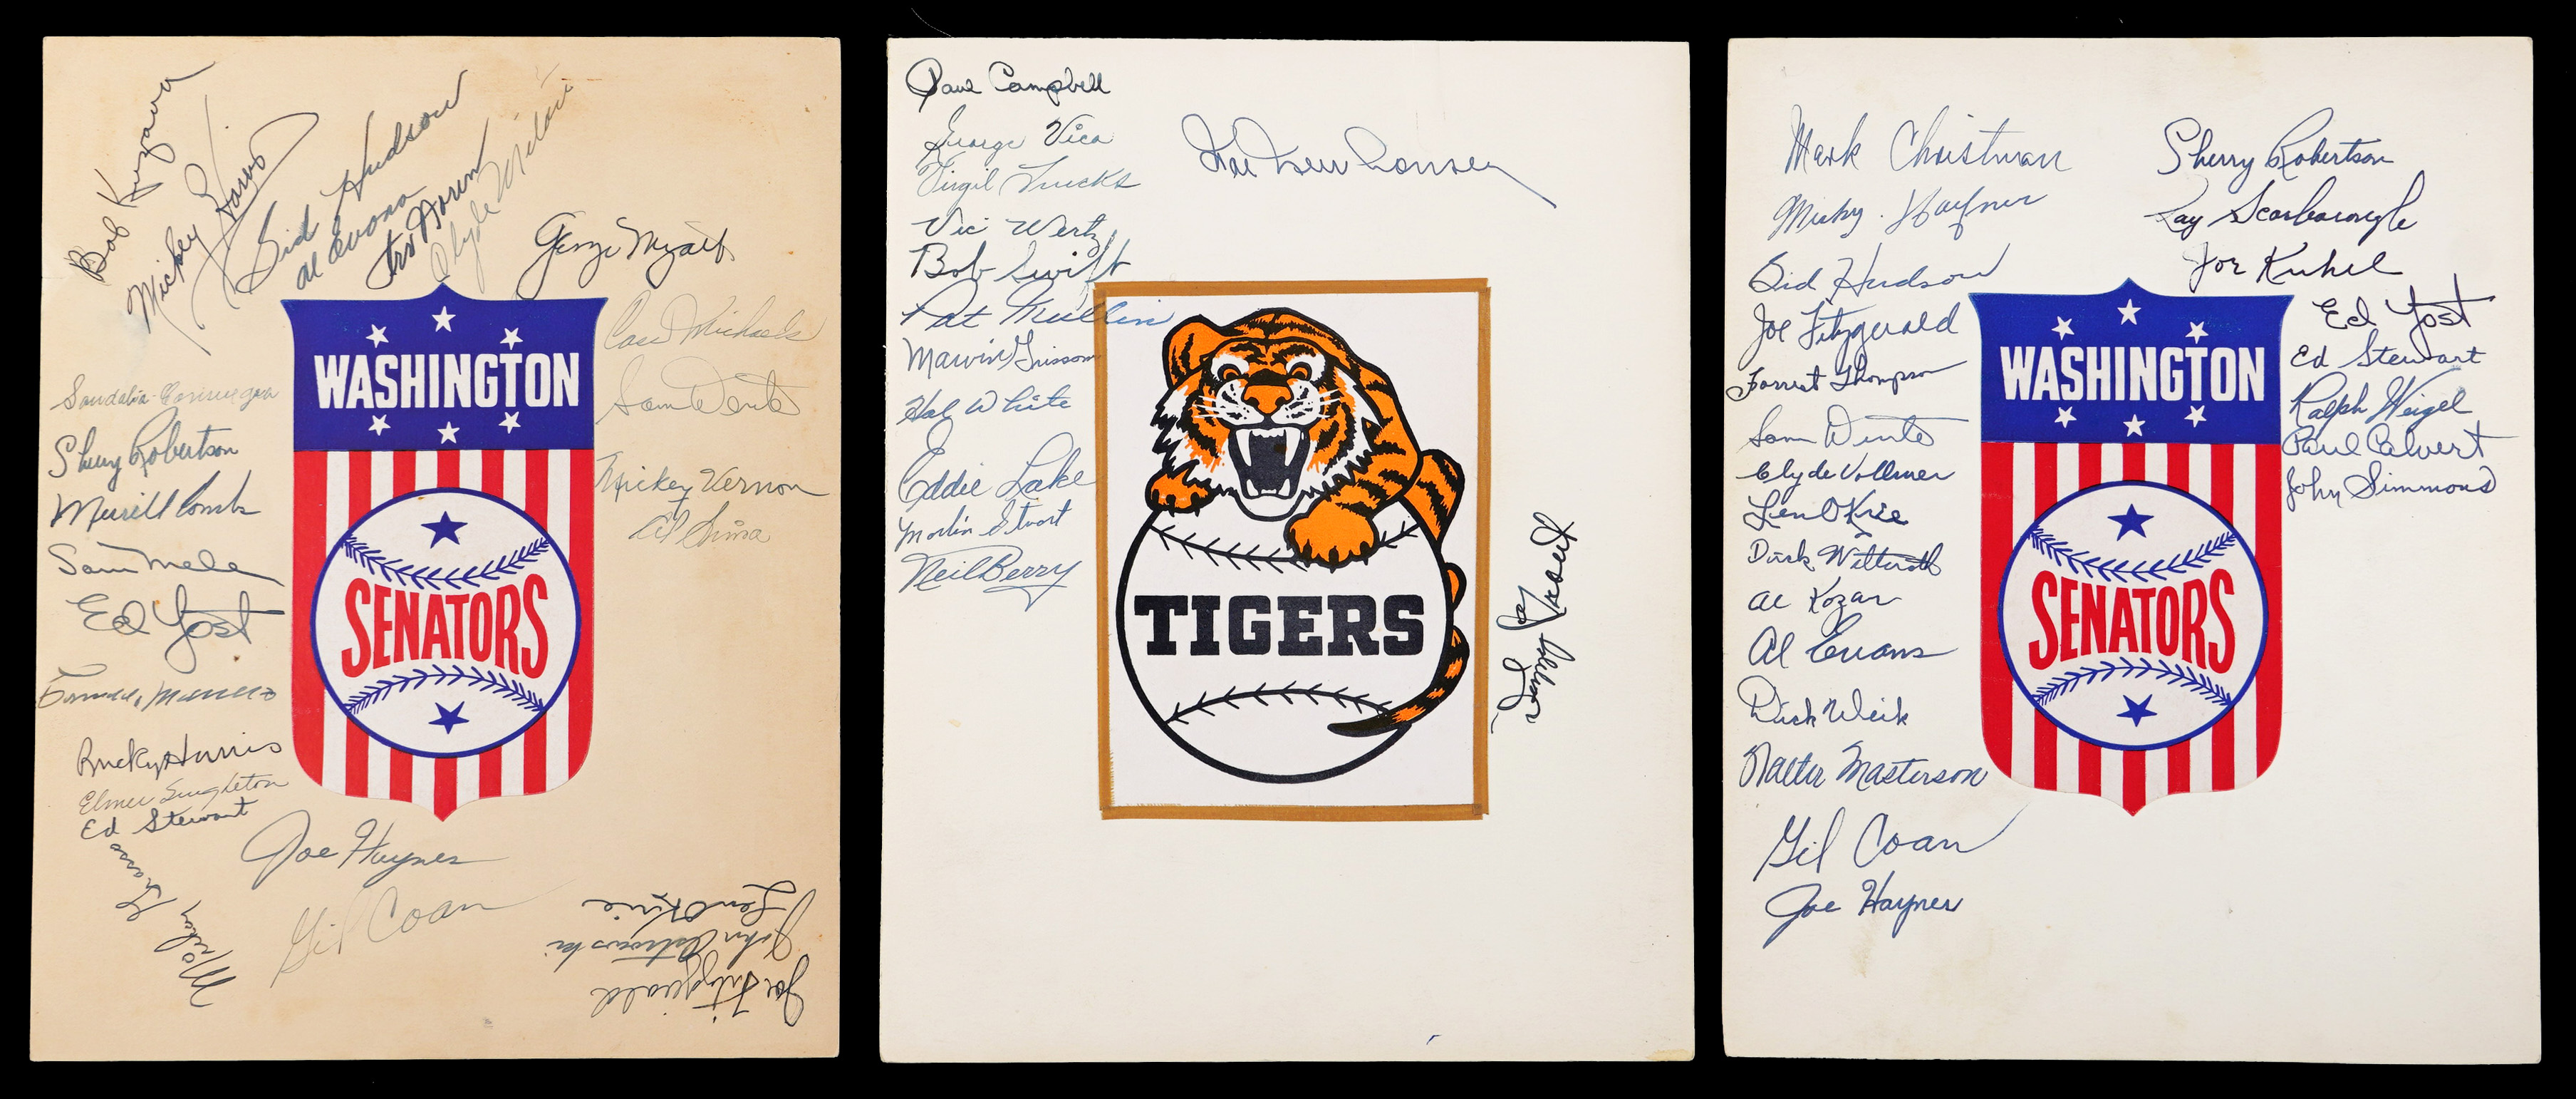 Bob Kuzava
Mickey Harris
Sid Hudson
Al Evans
Irv Noren
Clyde Milan
George Myatt
Cass Michaels
Sam Dente
Mickey Vernon
Al Sima
WASHINGTON
SENATORS
Sandalio Consuegra
Sherry Robertson
Merrill Combs
Sam Mele
Ed Yost
Bucky Harris
Elmer Singleton
Ed Stewart
Mickey Grasso
Joe Haynes
Gil Coan
Len Okrie
John Ostrowski
Joe Fitzgerald
Paul Campbell
George Vico
Virgil Trucks
Vic Wertz
Bob Swift
Pat Mullin
Marvin Grissom
Hal White
Eddie Lake
Marlin Stuart
Neil Berry
Hal Newhouser
TIGERS
Dizzy Trout
Mark Christman
Mickey Haefner
Sid Hudson
Joe Fitzgerald
Forrest Thompson
Sam Dente
Clyde Vollmer
Len Okrie
Dick Welteroth
Al Kozar
Al Evans
Dick Weik
Walter Masterson
Gil Coan
Joe Haynes
Sherry Robertson
Ray Scarborough
Joe Kuhel
Ed Yost
Ed Stewart
Ralph Weigel
Paul Calvert
John Simmons
WASHINGTON
SENATORS